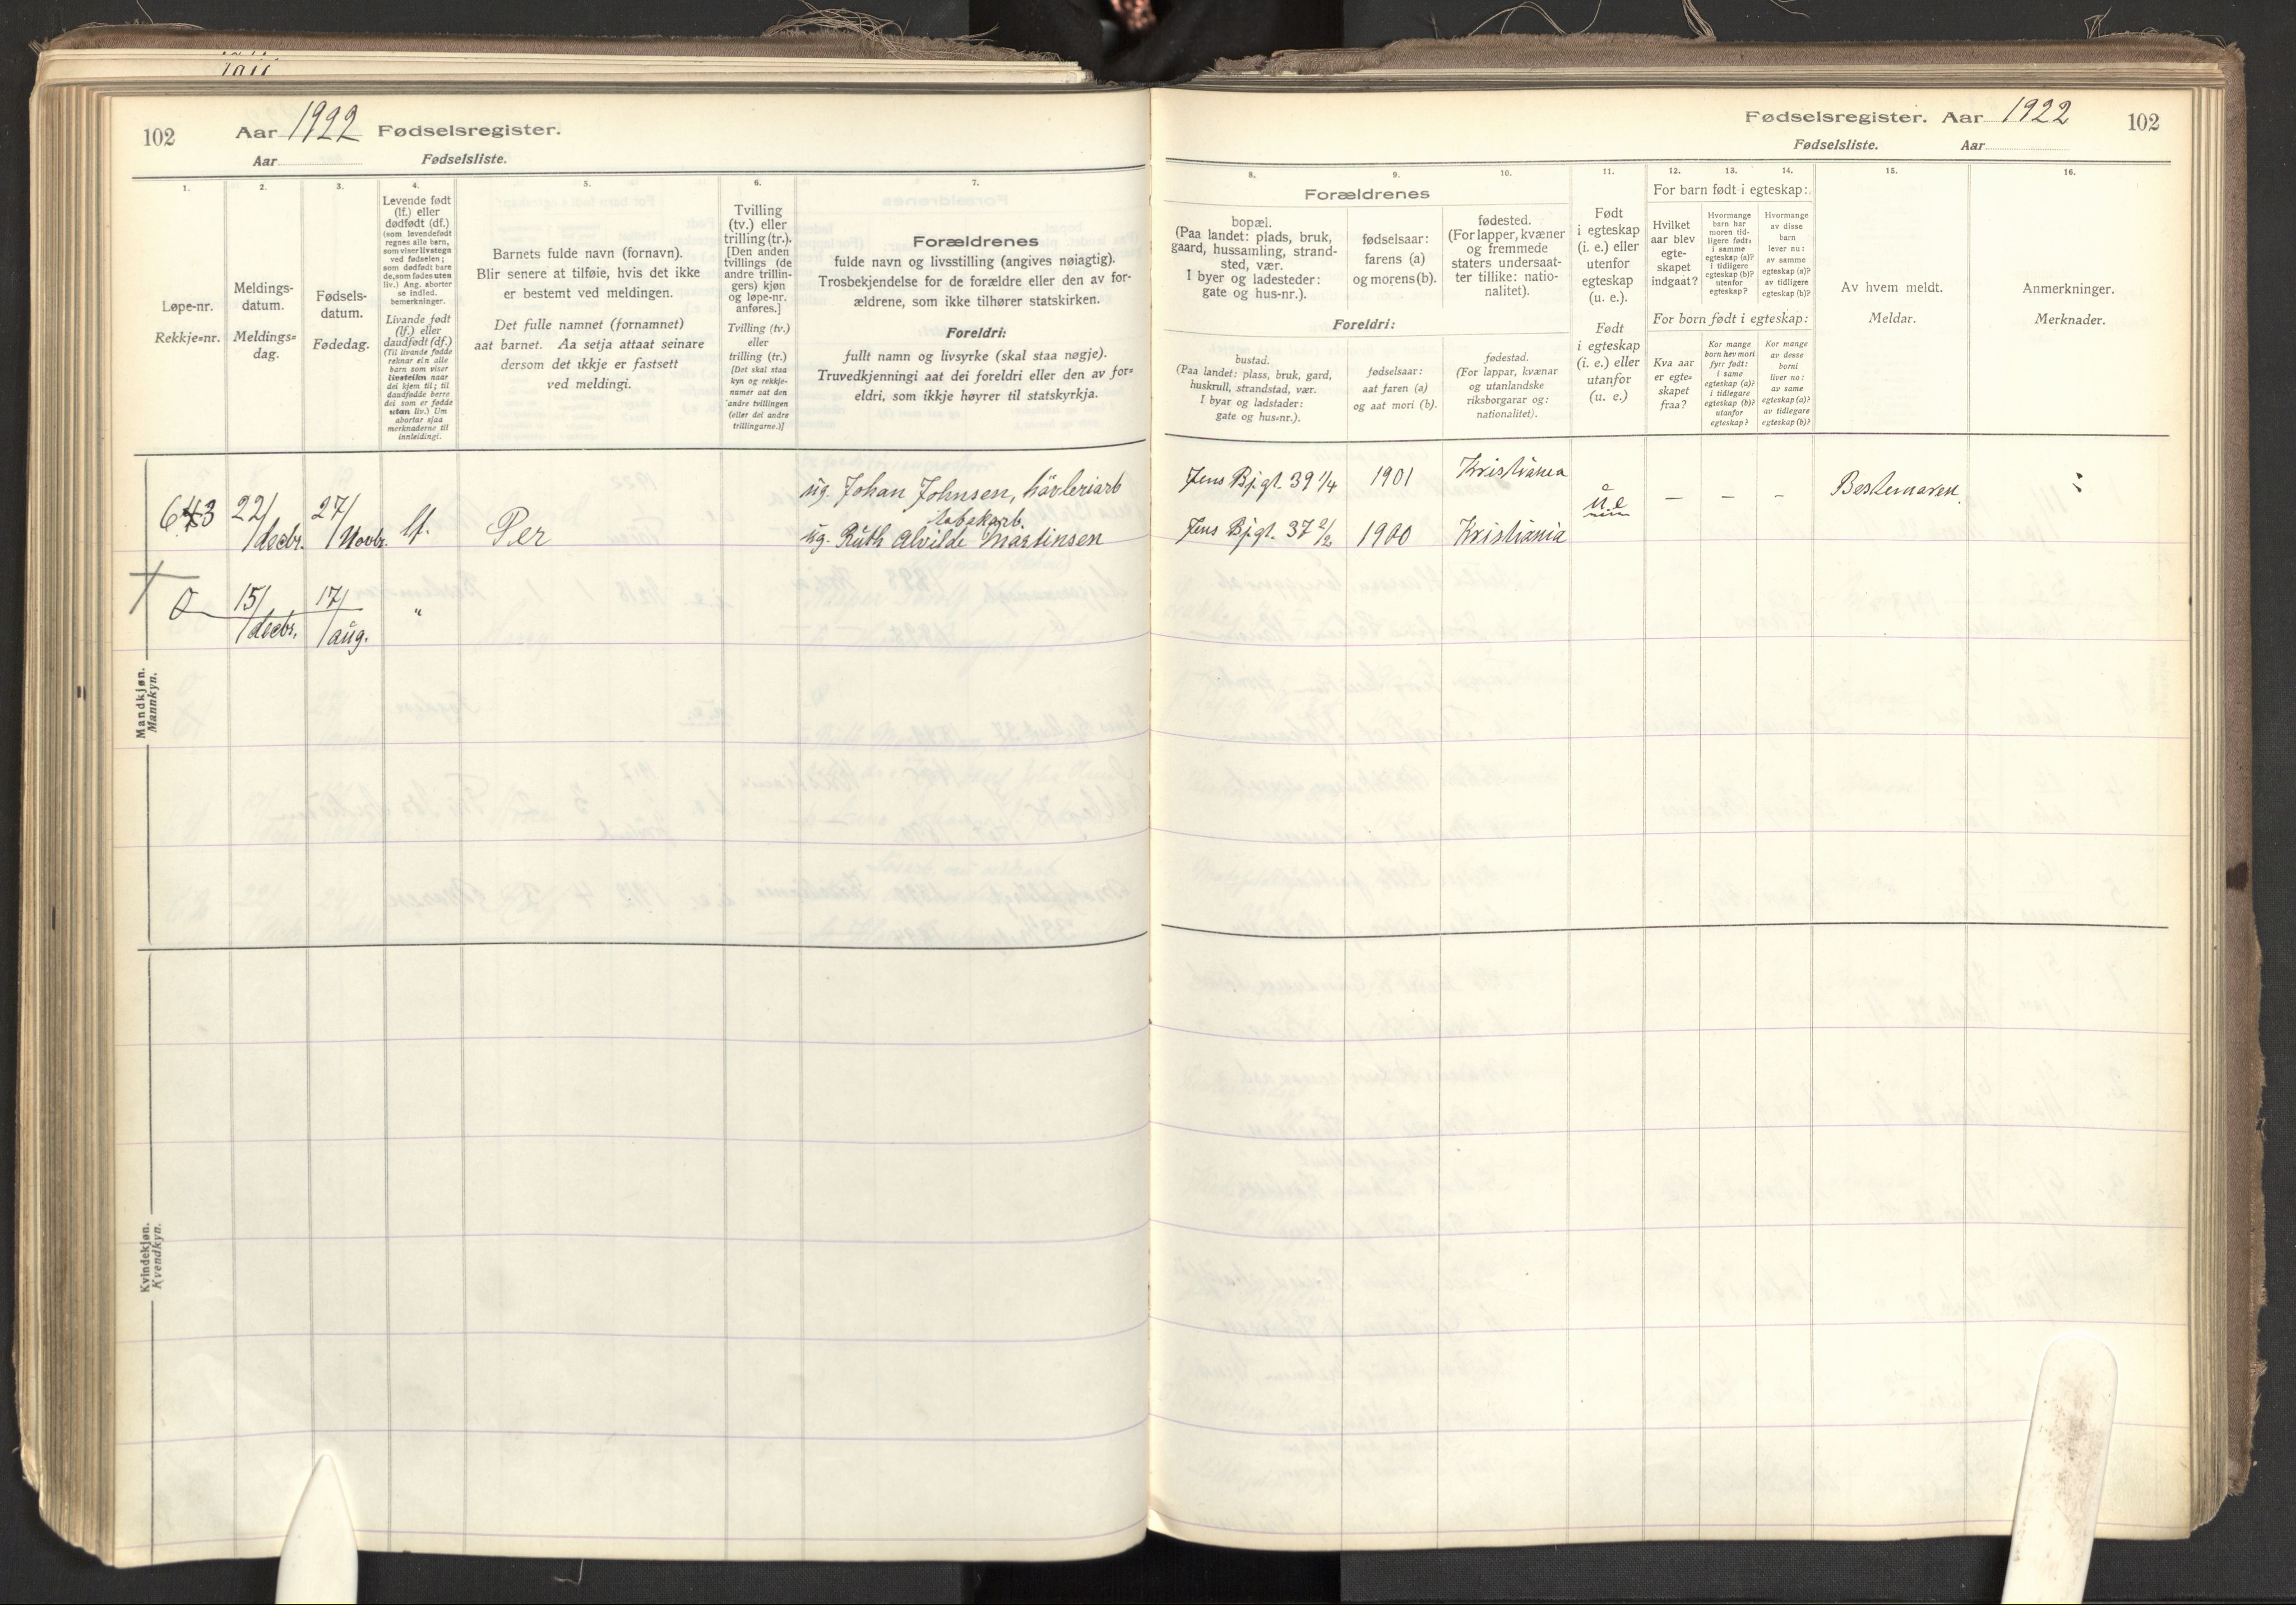 102 Aar 1922 Fødselsregister.
Aar Fødselsliste.
1. 2. 3. 4. 5. 6. 7.
Løpe-nr.
Rekkje=nr.
Meldings-
datum.
Meldings=
dag.
Fødsels-
datum.
Fødedag.
Levende født
(lf.) eller
dødfødt (df.)
(som levendefødt
regnes alle barn,
som viser livstegn
ved fødselen;
som dødfødt bare
de, som fødes uten
liv.) Ang. aborter
se indled.
bemerkninger.
Livande født
(lf.) eller
daudfødt (df.)
(Til livande fødde
reknar ein alle
barn som viser
livsteikn naar
dei kjem til; til
daudfødde berre
dei som er fødde
utan liv.) Um
abortar sjaa
merknaderne til
innleidingi.
Barnets fulde navn (fornavn).
Blir senere at tilføie, hvis det ikke
er bestemt ved meldingen.
Det fulle namnet (fornamnet)
aat barnet. Aa setja attaat seinare
dersom det ikkje er fastsett
ved meldingi.
Tvilling
(tv.) eller
trilling (tr.).
[Den anden
tvillings (de
andre trillin-
gers) kjøn
og løpe-nr.
anføres.]
Tvilling (tv.)
eller
trilling (tr.)
[Det skal staa
kyn og rekkje-
numer aat den
andre tvillingen
(eller dei andre
trillingarne.)]
Forældrenes
fulde navn og livsstilling (angives nøiagtig).
Trosbekjendelse for de forældre eller den av for-
ældrene, som ikke tilhører statskirken.
Foreldri:
fullt namn og livsyrke (skal staa nøgje).
Truvedkjenningi aat dei foreldri eller den av for=
eldri, som ikkje høyrer til statskyrkja.
643 22/decbr. 27/Novbr. lf. Per
ug. Johan Johnsen, høvleriarb
tobakarb.
ug. Ruth Alvilde Martinsen
0 15/decbr. 17/aug. "
Mandkjøn.
Mannkyn.
Kvindekjøn.
Kvendkyn.
Fødselsregister. Aar 1922 102
Fødselsliste. Aar
8. 9. 10. 11. 12. 13. 14. 15. 16.
Forældrenes
bopæl.
(Paa landet: plads, bruk,
gaard, hussamling, strand-
sted, vær.
I byer og ladesteder:
gate og hus-nr.).
fødselsaar:
farens (a)
og morens (b).
fødested.
(For lapper, kvæner
og fremmede
staters undersaat-
ter tillike: natio-
nalitet).
Foreldri:
bustad.
(Paa landet: plass, bruk, gard,
huskrull, strandstad, vær.
I byar og ladstader:
gate og hus=nr.).
fødselsaar:
aat faren (a)
og aat mori (b).
fødestad.
(For lappar, kvænar
og utanlandske
riksborgarar og:
nationalitet).
Født
i egteskap
(i. e.) eller
utenfor
egteskap
(u. e.).
Født
i egteskap
(i. e.) eller
utanfor
(u. e.)
For barn født i egteskap:
Hvilket
aar blev
egte-
skapet
indgaat?
Hvormange
barn har
moren tid-
ligere født:
i samme
egteskap (a)?
i tidligere
egteskap (b)?
utenfor
egteskap?
Hvormange
av disse
barn
lever nu:
av samme
egteskap (a)?
av tidligere
egteskap (b)?
For born født i egteskap:
Kva aar
er egte=
skapet
fraa?
Kor mange
born hev mori
fyrr født:
i same
egteskap (a)?
i tidlegare
egteskap (b)?
utanfor
egteskap?
Kor mange
av desse
borni
liver no:
av same
egteskap (a)?
av tidlegare
egteskap (b)?
Av hvem meldt.
Meldar.
Anmerkninger.
Merknader.
Jens Bj.gt. 39 1/4 1901 Kristiania
u.e – – – Bestemoren.
Jens Bj.gt. 37 2/2 1900 Kristiania